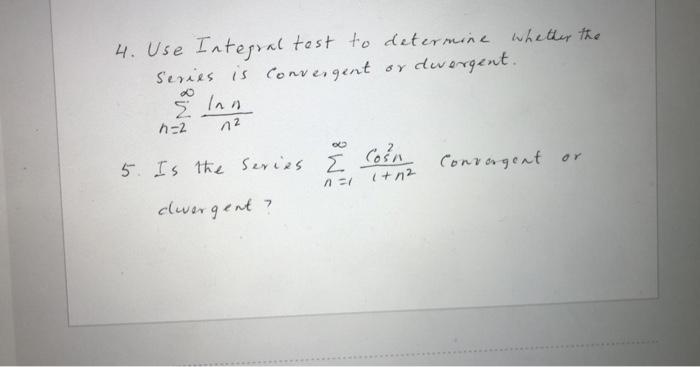 4. Use Integral test to determine whether the
Series is Convergent or divergent.
∞
Σ ln n / n²
n=2
5. Is the Series ∞ Σ n=1 Cos²n / 1+n² Convergent or
divergent?